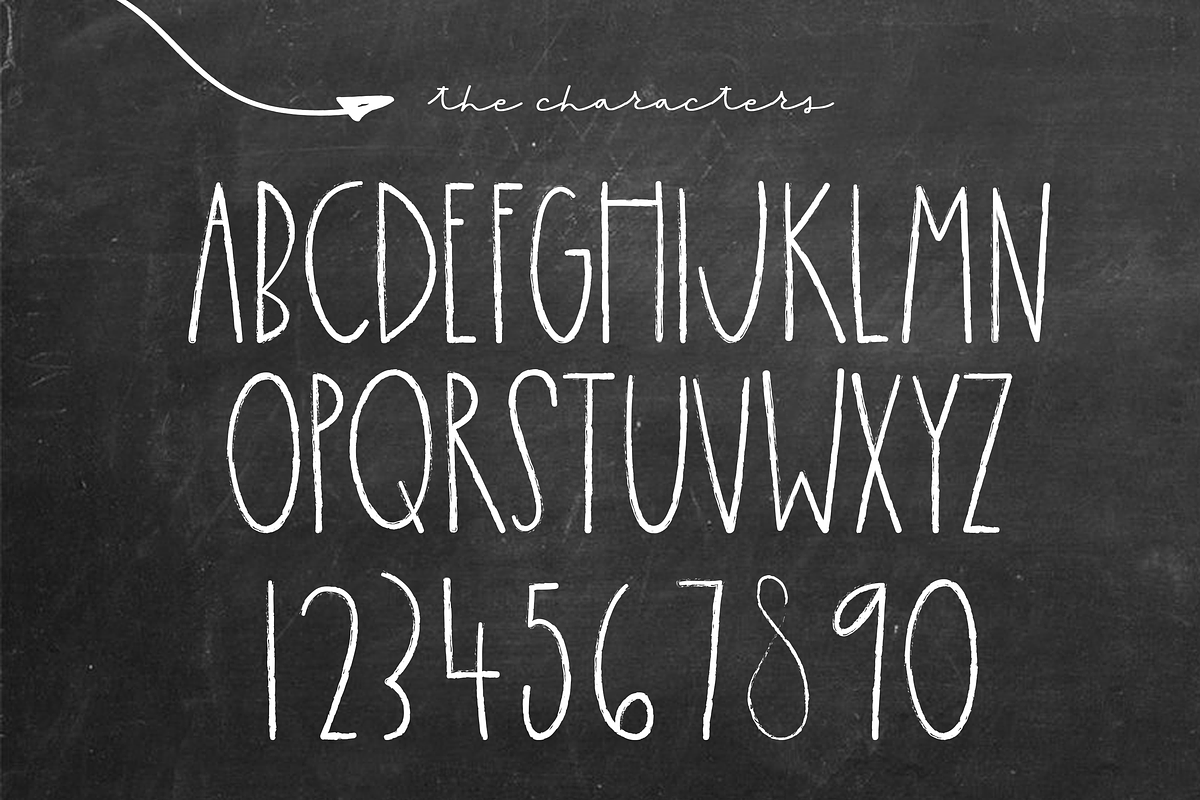 the characters
ABCDEFGHIJKLMN
OPQRSTUVWXYZ
1234567890